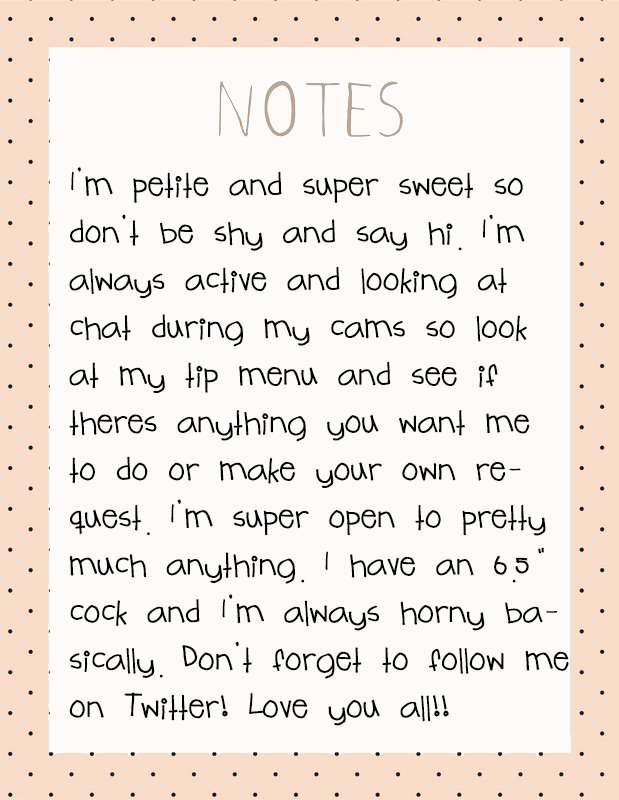 NOTES
I'm petite and super sweet so
don't be shy and say hi. I'm
always active and looking at
chat during my cams so look
at my tip menu and see if
theres anything you want me
to do or make your own re-
quest. I'm super open to pretty
much anything. I have an 6.5"
cock and I'm always horny ba-
sically. Don't forget to follow me
on Twitter! Love you all!!